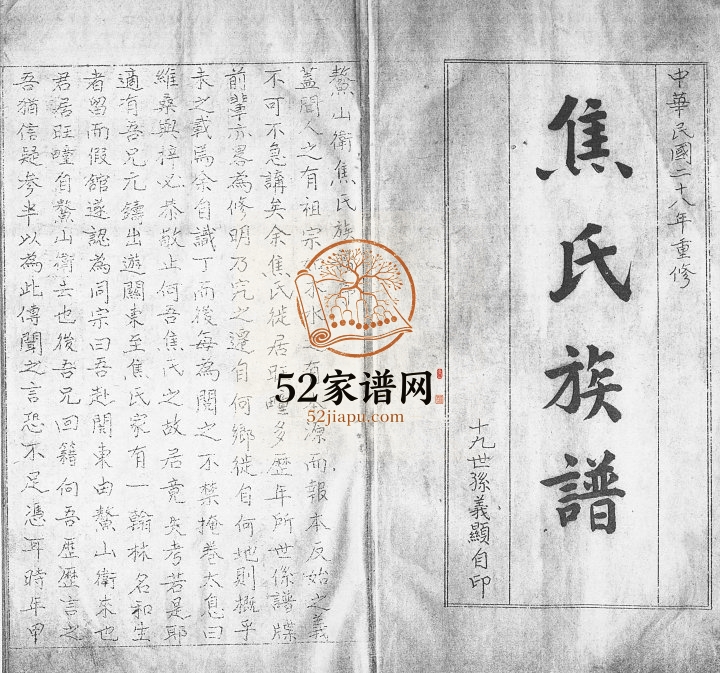 中華民國二十八年重修
焦氏族譜
十九世孫義顯自印
鰲山衛焦氏族
蓋聞人之有祖宗 水 有 源而報本反始之義
不可不急講矣余焦氏徙居旺疃多歷年所世係譜牒
前輩亦畧為修明乃究之遷自何鄉徙自何地則概乎
未之載焉余自識丁而後每為閱之不禁掩卷太息曰
維桑與梓必恭敬止何吾焦氏之故居竟失考若是耶
適有吾兄元鑄出遊關東至焦氏家有一翰林名和生
者留而假館遂認為同宗曰吾赴關東由鰲山衛來也
君居旺疃自鰲山衛去也後吾兄回籍向吾歷歷言之
吾猶信疑參半以為此傳聞之言恐不足憑耳時年甲
52家谱网
52jiapu.com